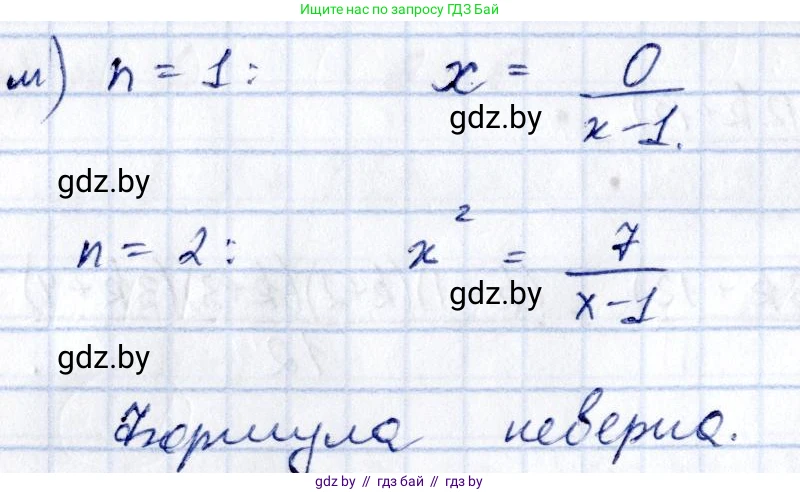 Ищите нас по запросу ГДЗ Бай
м) n = 1: x = 0/(x-1).
gdz.by
gdz.by
n = 2: x² = 7/(x-1)
gdz.by
gdz.by
Формула неверна.
gdz.by // гдз бай // гдз by